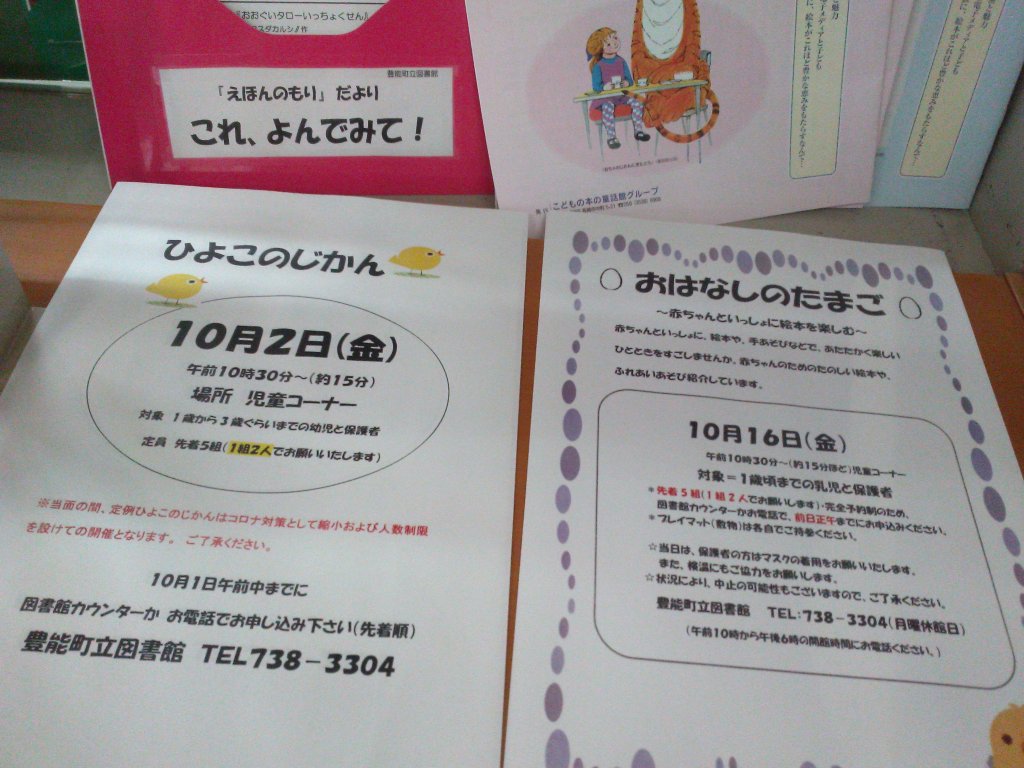 『おおぐいタローいっちょくせん』
豊能町立図書館
「えほんのもり」だより
これ、よんでみて！
こどもの本の童話館グループ
ひよこのじかん
10月2日(金)
午前10時30分～(約15分)
場所 児童コーナー
対象 1歳から3歳ぐらいまでの幼児と保護者
定員 先着5組(1組2人でお願いいたします)
※当面の間、定例ひよこのじかんはコロナ対策として縮小および人数制限
を設けての開催となります。ご了承ください。
10月1日午前中までに
図書館カウンターか お電話でお申し込み下さい(先着順)
豊能町立図書館 TEL738－3304
おはなしのたまご
～赤ちゃんといっしょに絵本を楽しむ～
赤ちゃんといっしょに、絵本や、手あそびなどで、あたたかく楽しい
ひとときをすごしませんか。赤ちゃんのためのたのしい絵本や、
ふれあいあそび紹介しています。
10月16日(金)
午前10時30分～(約15分ほど)児童コーナー
対象＝1歳頃までの乳児と保護者
*先着5組(1組2人でお願いします)・完全予約制のため、
図書館カウンターかお電話で、前日正午までにお申込みください。
*プレイマット(敷物)は各自でご持参ください。
☆当日は、保護者の方はマスクの着用をお願いいたします。
また、検温にもご協力をお願いします。
☆状況により、中止の可能性もございますので、ご了承ください。
豊能町立図書館 TEL:738－3304(月曜休館日)
(午前10時から午後6時の開館時間にお電話ください。)